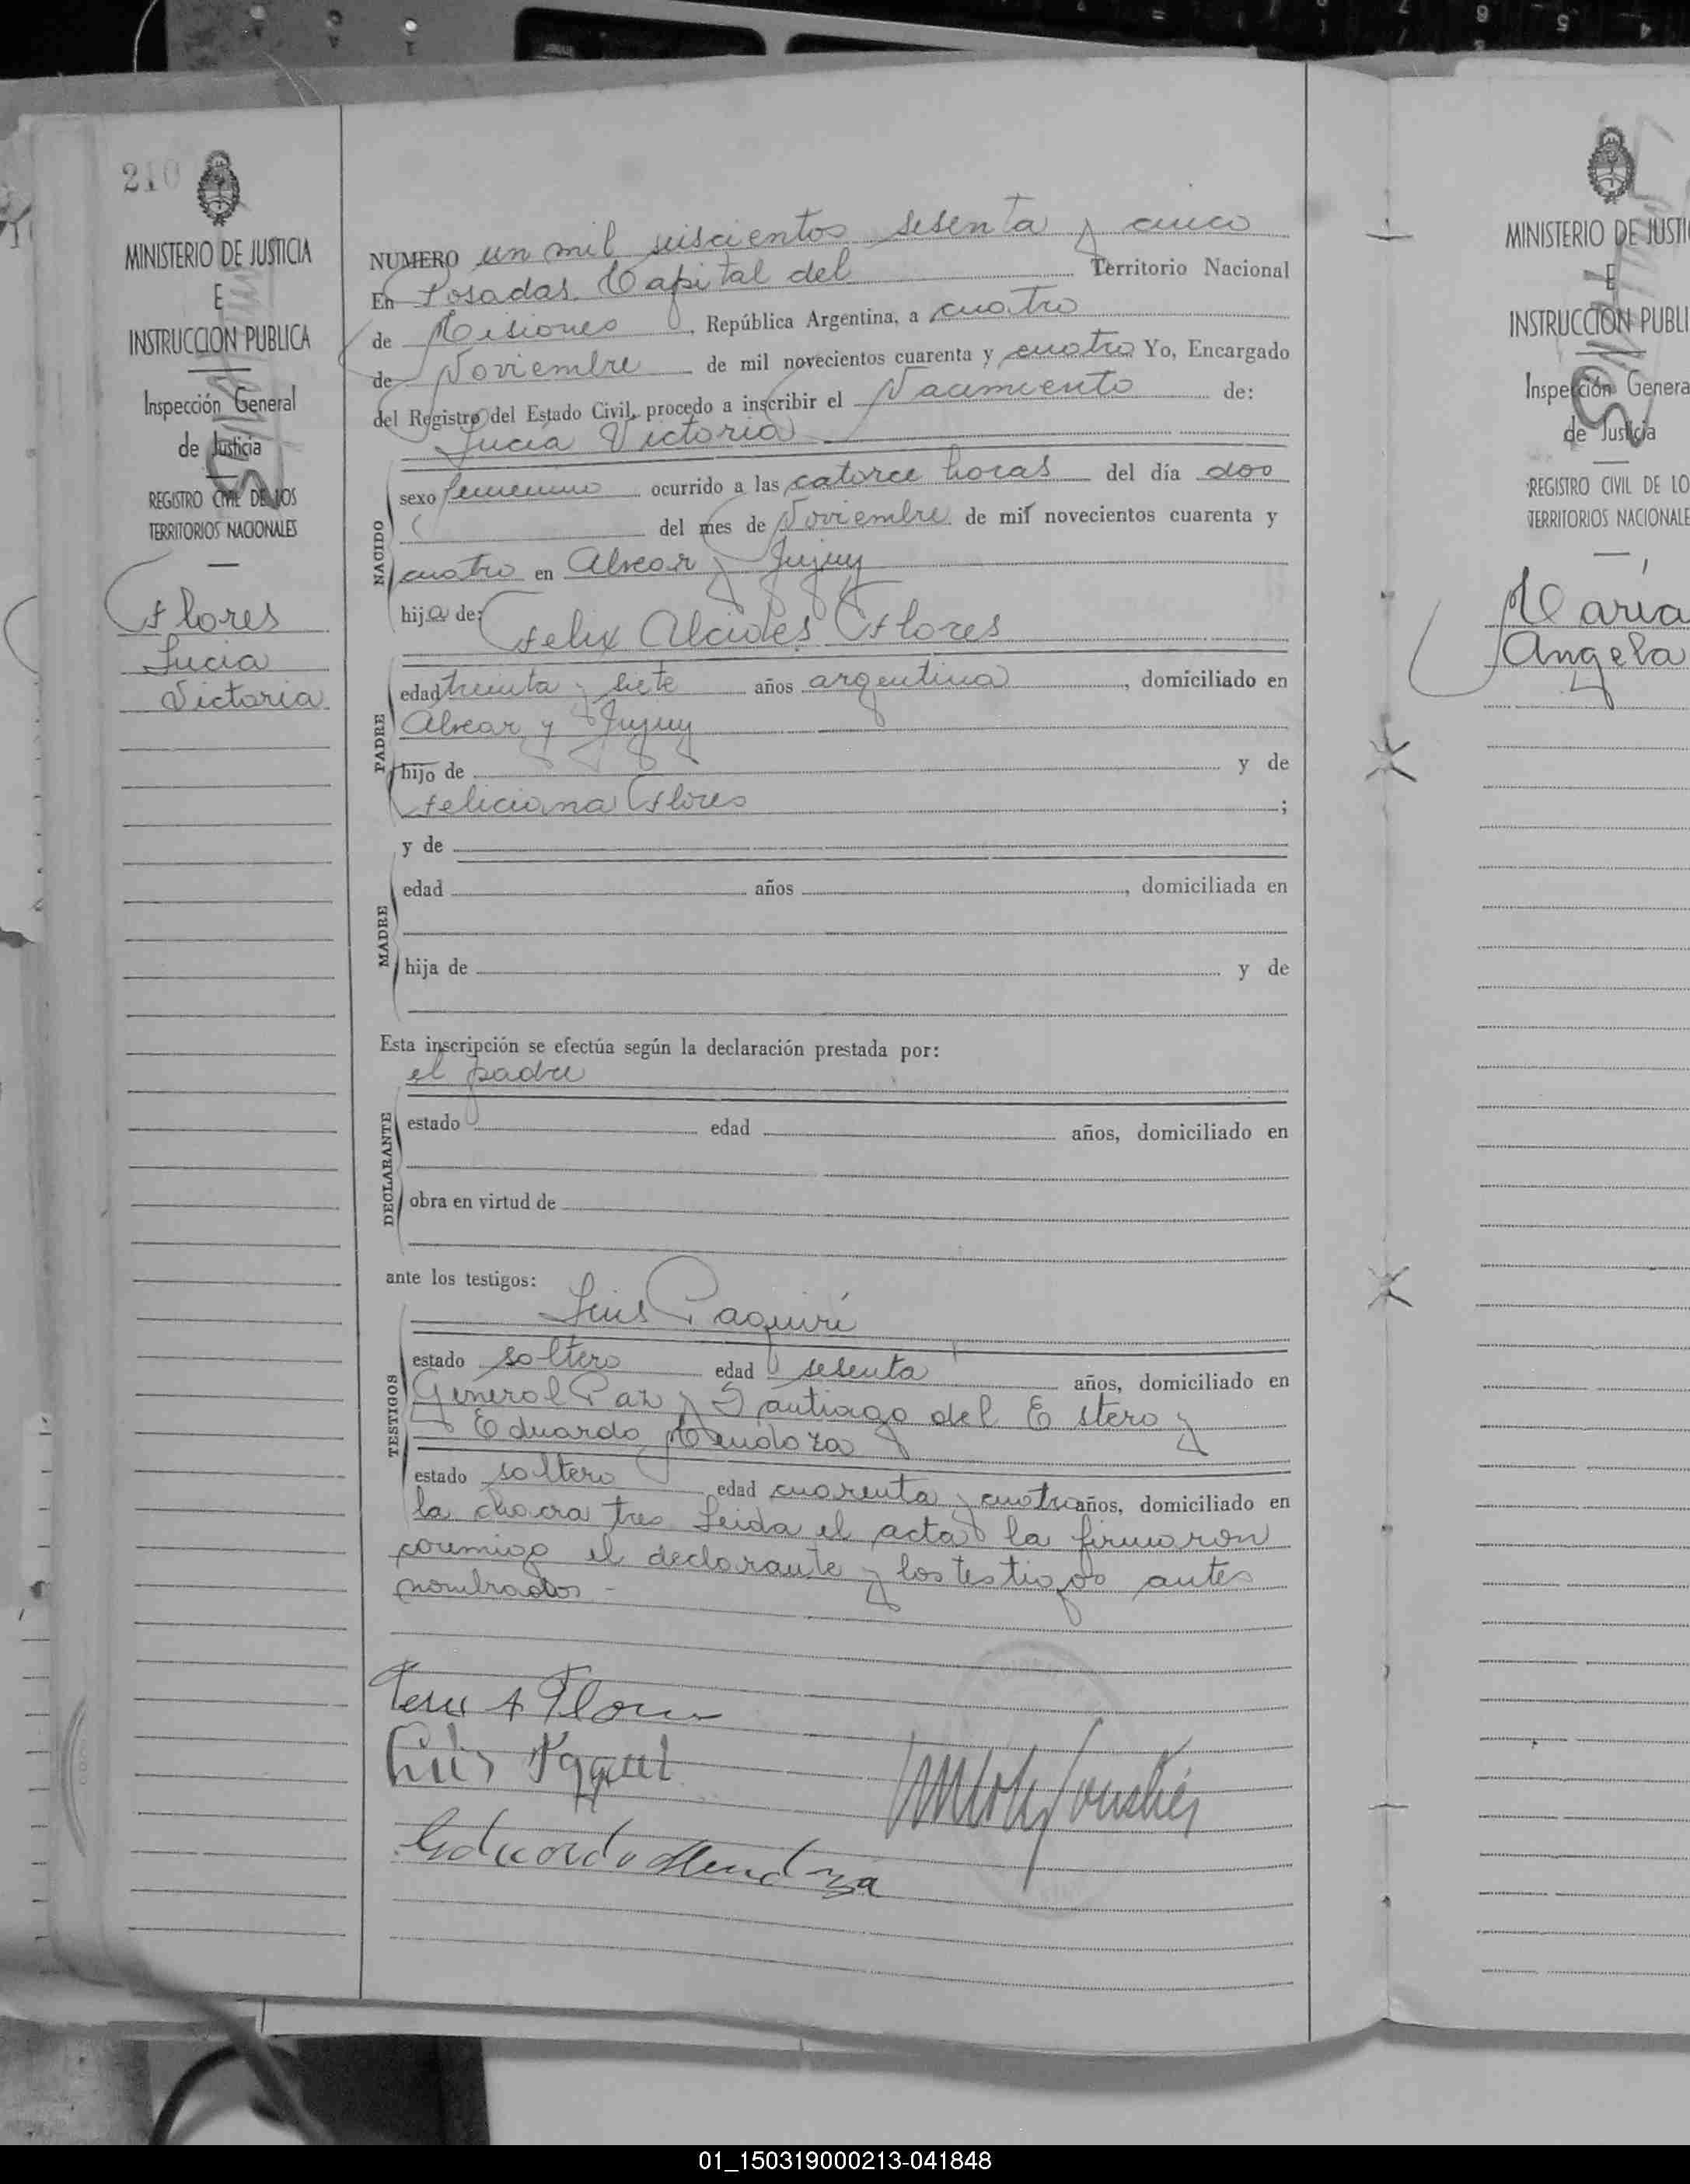 210
MINISTERIO DE JUSTICIA
E
INSTRUCCION PUBLICA
Inspección General
de Justicia
REGISTRO CIVIL DE LOS
TERRITORIOS NACIONALES
Flores
Lucia
Victoria
NUMERO un mil seiscientos sesenta y cinco
En Posadas Capital del Territorio Nacional
de Misiones, República Argentina, a cuatro
de Noviembre de mil novecientos cuarenta y cuatro Yo, Encargado
del Registro del Estado Civil, procedo a inscribir el Nacimiento de:
Lucia Victoria
NACIDO
sexo femenino ocurrido a las catorce horas del día dos
del mes de Noviembre de mil novecientos cuarenta y
cuatro en Alvear y Jujuy
hija de: Felix Alcides Flores
PADRE
edad treinta y siete años argentina, domiciliado en
Alvear y Jujuy
hijo de y de
Feliciana Flores;
y de
MADRE
edad años, domiciliada en
hija de y de
Esta inscripción se efectúa según la declaración prestada por:
el padre
DECLARANTE
estado edad años, domiciliado en
obra en virtud de
ante los testigos:
Luis Paquiri
TESTIGOS
estado soltero edad sesenta años, domiciliado en
General Paz y Santiago del Estero y
Eduardo Mendoza
estado soltero edad cuarenta y cuatro años, domiciliado en
la chacra tres Leida el acta la firmaron
conmigo el declarante y los testigos antes
nombrados -
A Flores
Luis
Eduardo Mendoza
MINISTERIO DE JUSTI
E
INSTRUCCION PUBLI
Inspección Genera
de Justicia
REGISTRO CIVIL DE LO
TERRITORIOS NACIONALE
Maria
Angela
01_150319000213-041848